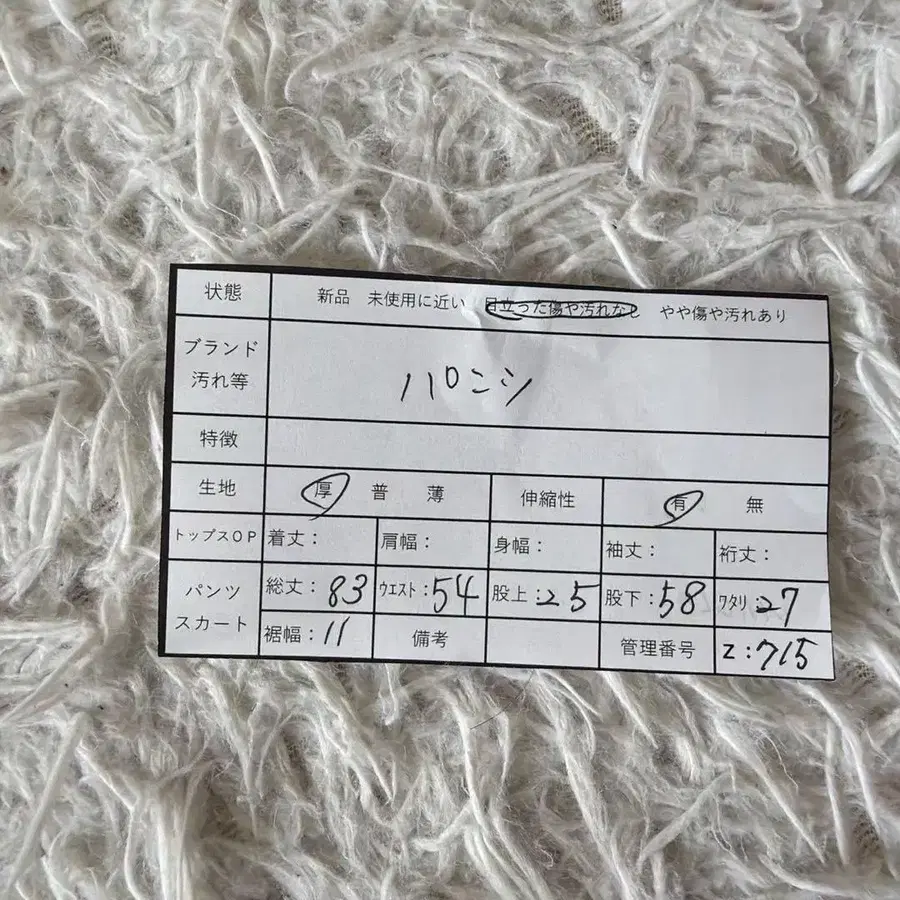 状態 新品 未使用に近い 目立った傷や汚れなし やや傷や汚れあり
ブランド
汚れ等
パロニシ
特徴
生地 厚 普 薄 伸縮性 有 無
トップスOP 着丈: 肩幅: 身幅: 袖丈: 裄丈:
パンツ
スカート
総丈:83 ウエスト:54 股上:25 股下:58 ワタリ:27
裾幅:11 備考 管理番号 Z:715